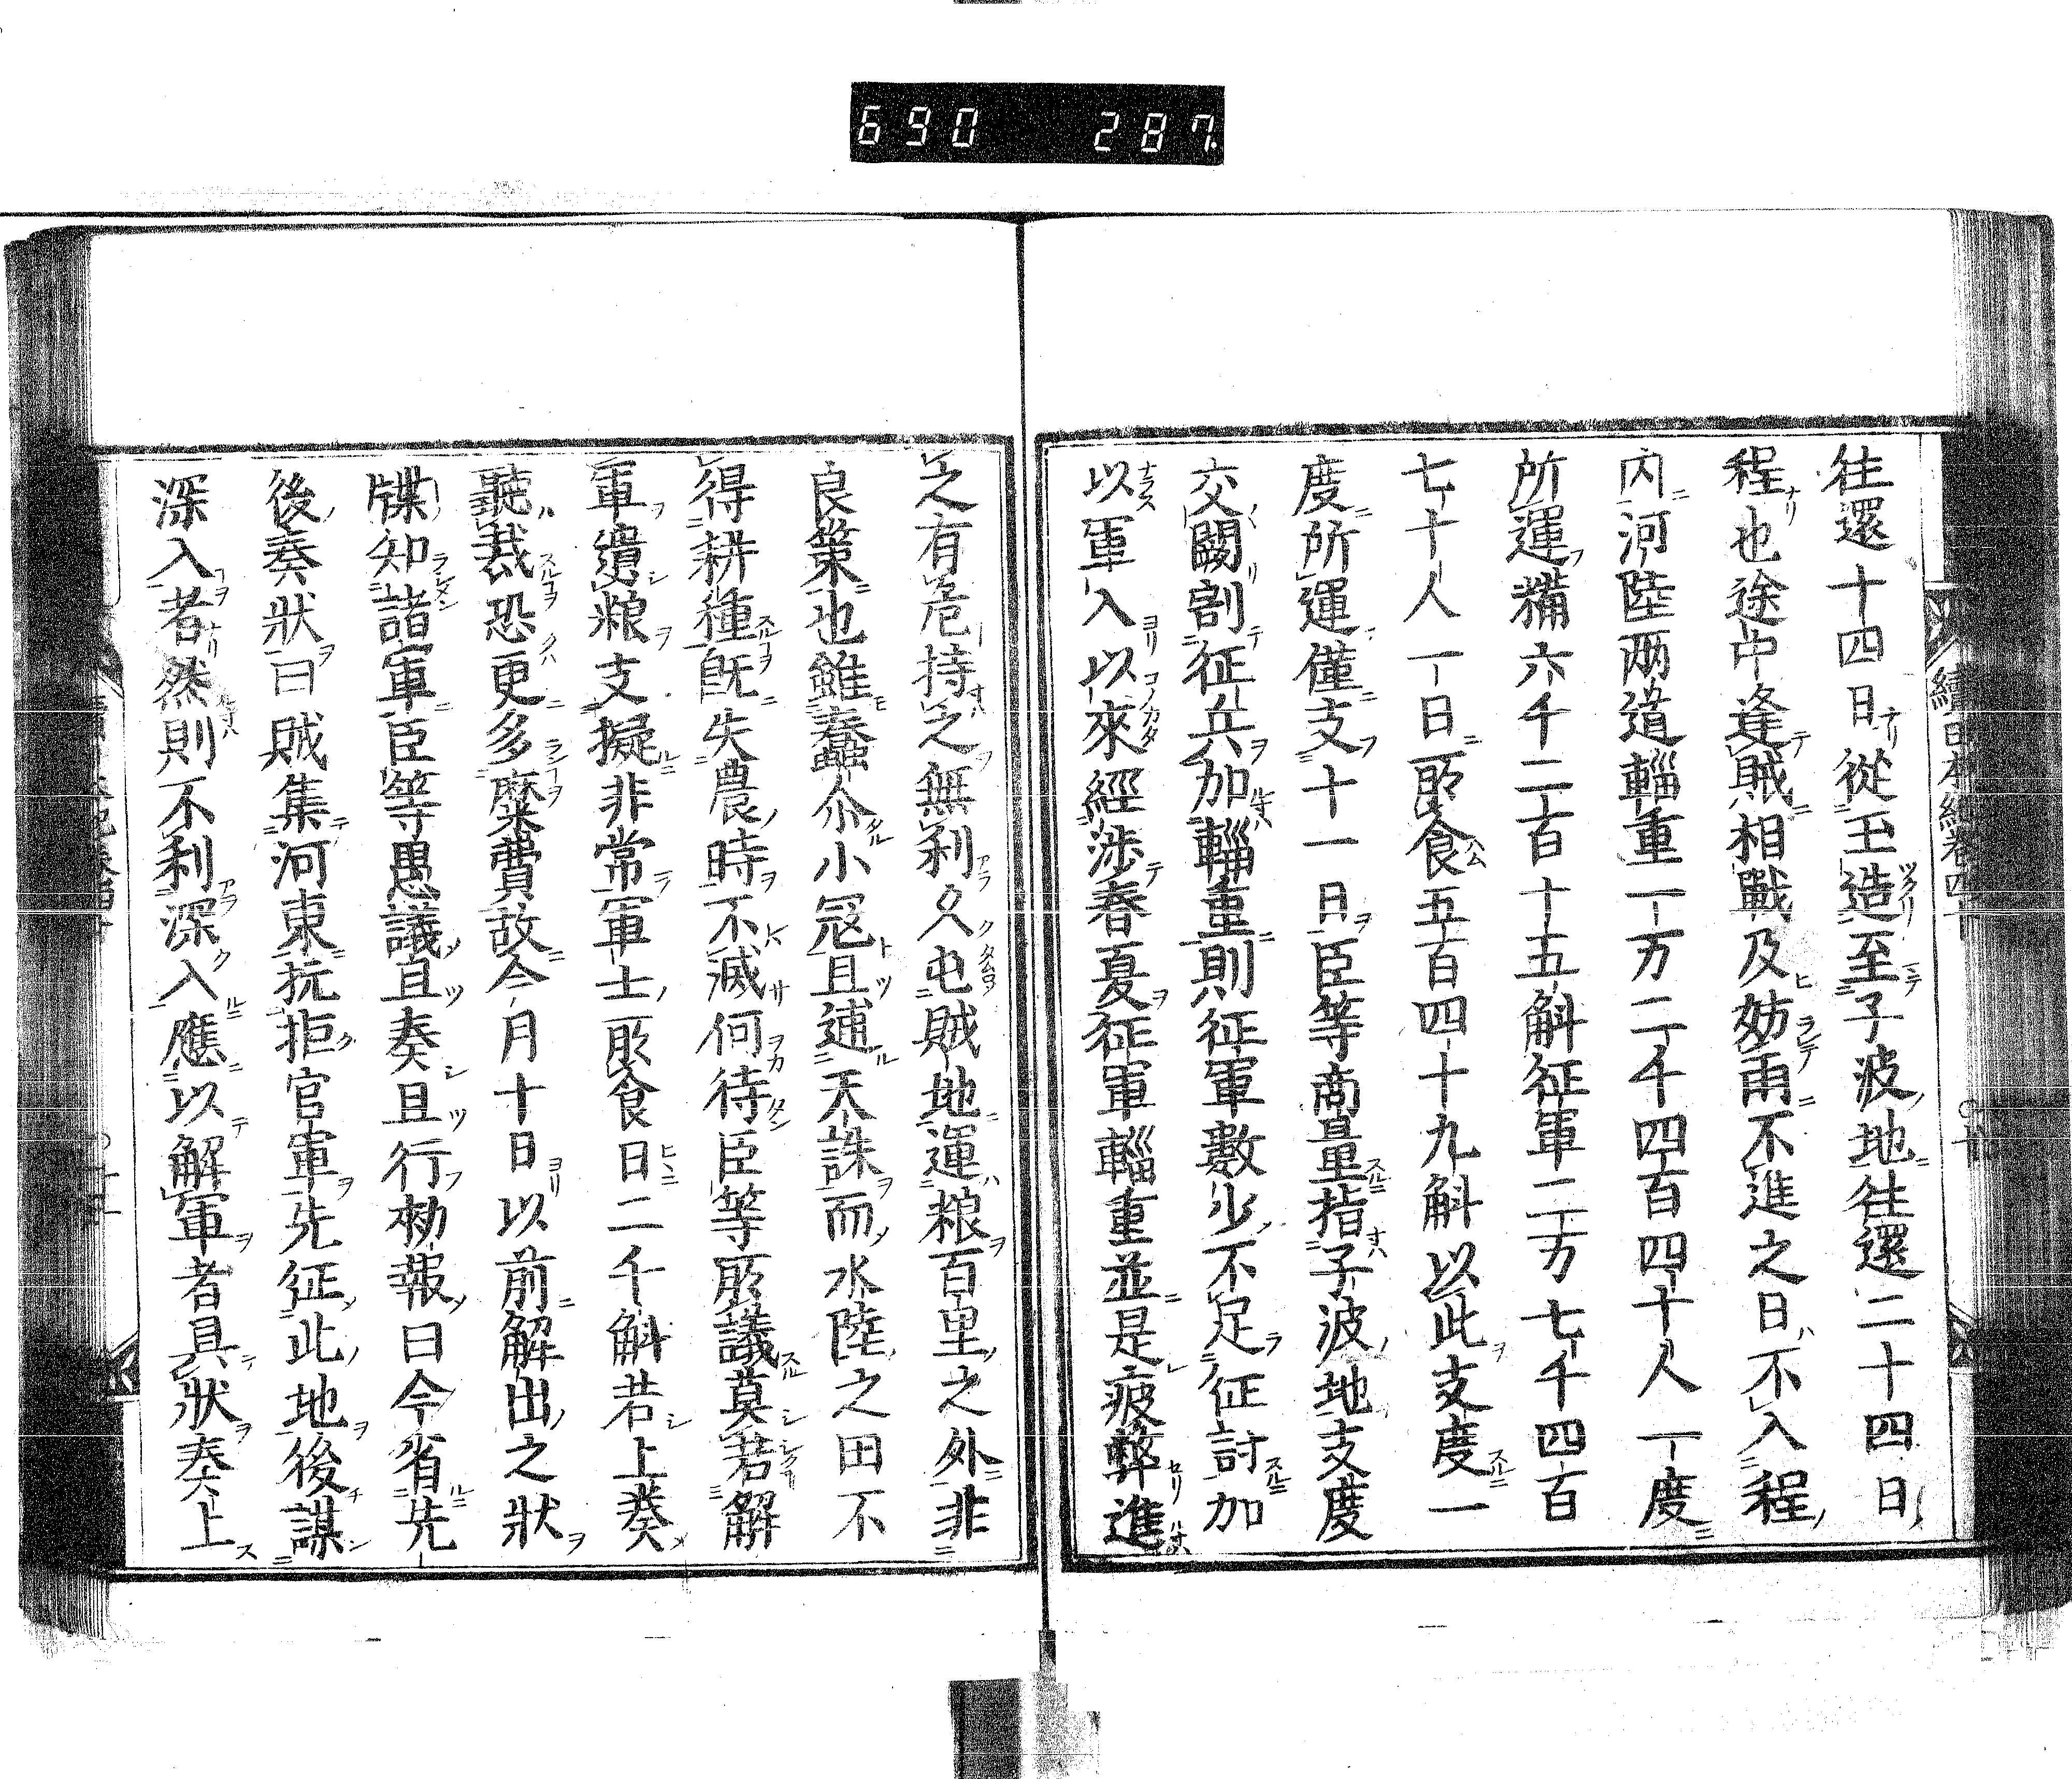 690 287
往還十四日從玉造至子波地往還二十四日
程也途中逢賊相戰及妨雨不進之日不入程
內河陸兩道輜重一万二千四百四十人一度
所運糒六千二百十五斛征軍二万七千四百
七十人一日所食五百四十九斛以此支度一
度所運僅支十一日臣等商量指子波地支度
交闕割征兵加輜重則征軍數少不足征討加
以軍入以來經涉春夏征軍輜重並是疲弊進
之有危持之無利久屯賊地運粮百里之外非
良策也雖蠢尒小冦且逋天誅而水陸之田不
得耕種既失農時不滅何待臣等所議莫若解
軍遺粮支擬非常軍士所食日二千斛若上奏
聽裁恐更多糜費故今月十日以前解出之狀
牒知諸軍臣等愚議且奏且行勑報曰今省先
後奏狀曰賊集河東抗拒官軍先征此地後謀
深入者然則不利深入應以解軍者具狀奏上